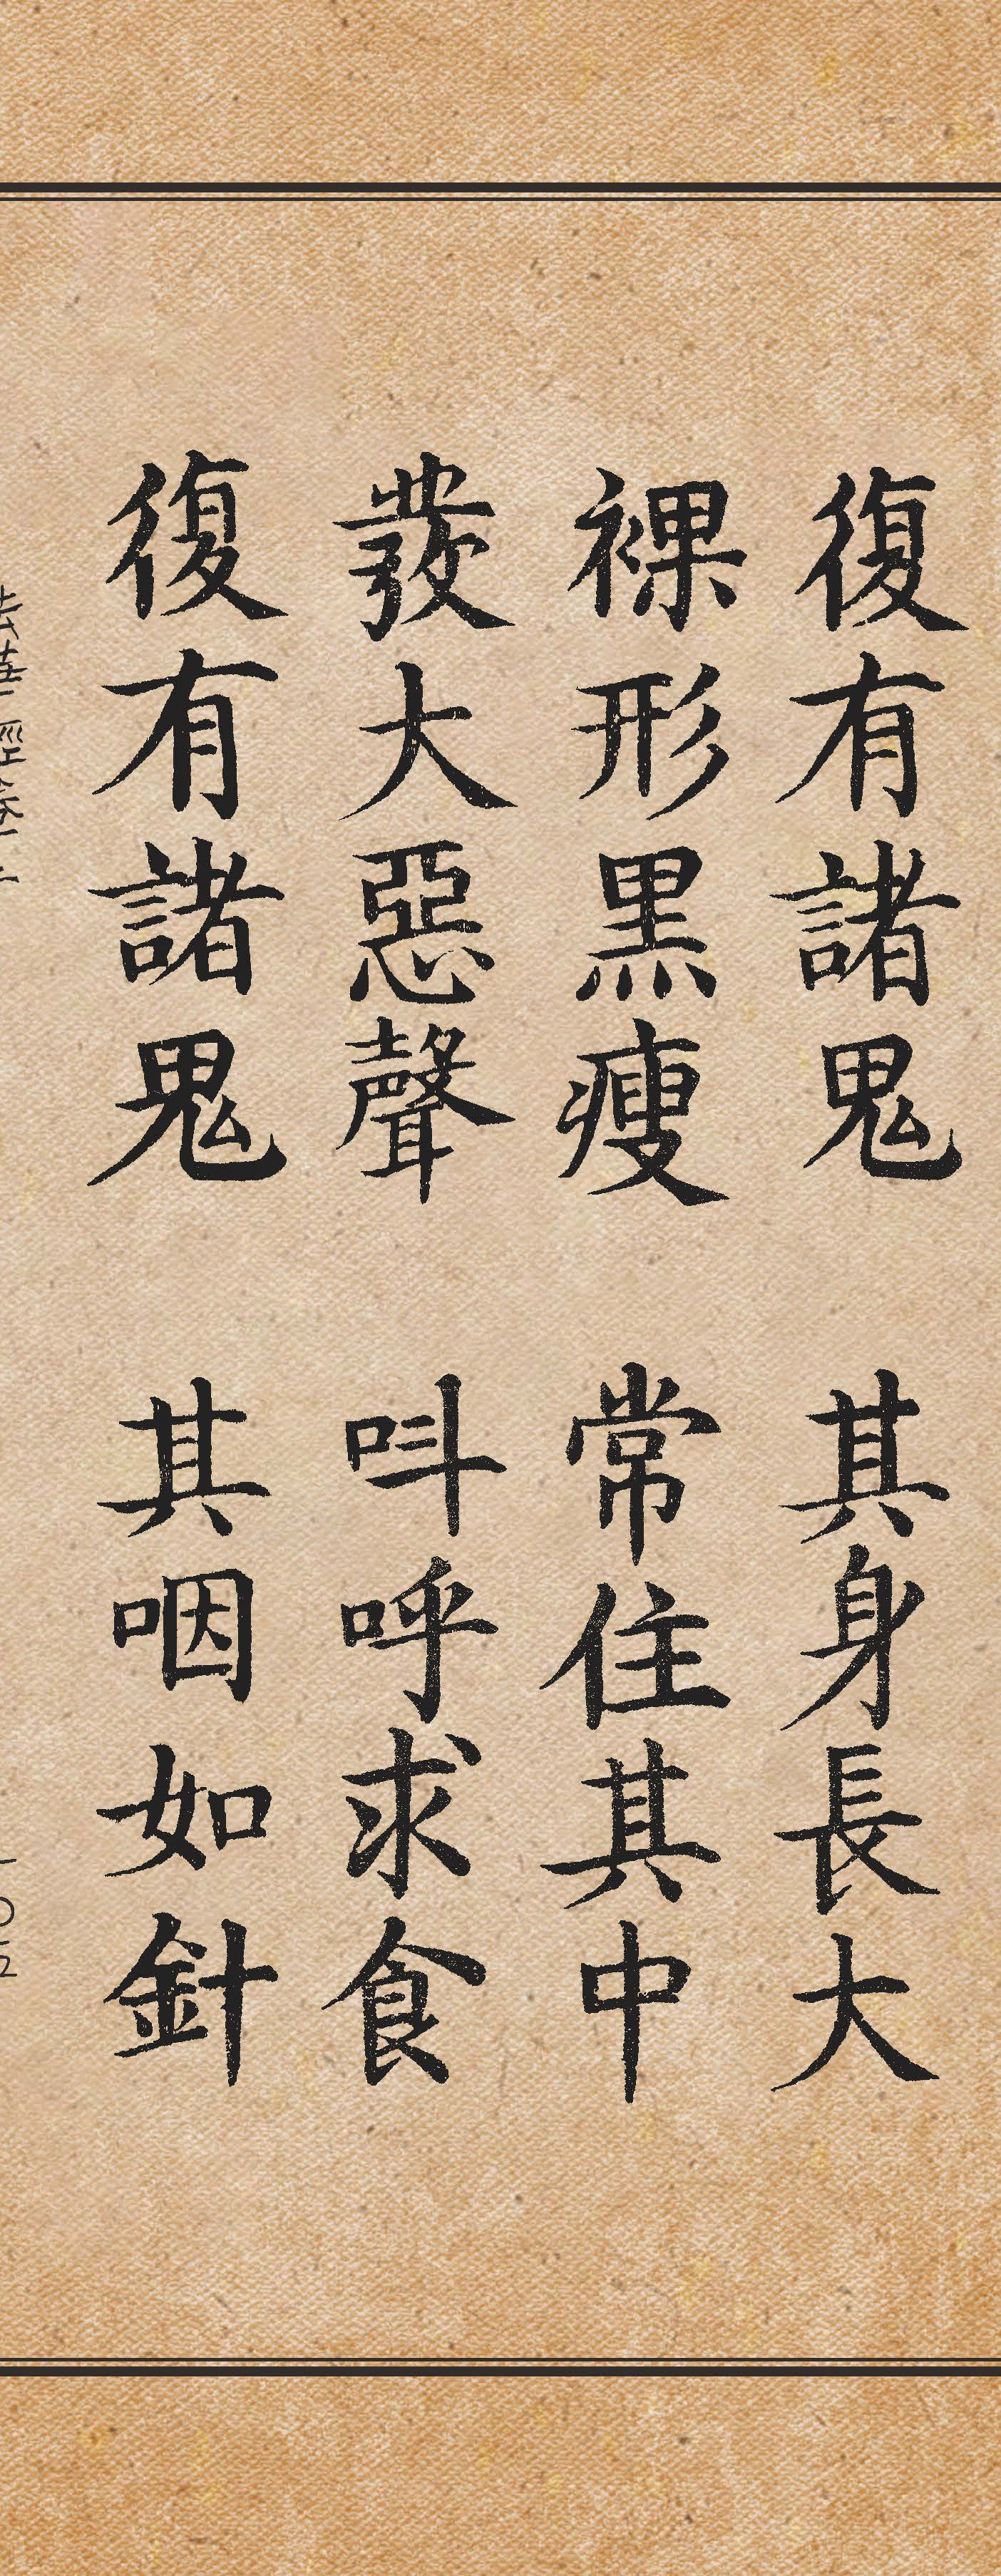 復有諸鬼 其身長大
裸形黑瘦 常住其中
發大惡聲 呌呼求食
復有諸鬼 其咽如針